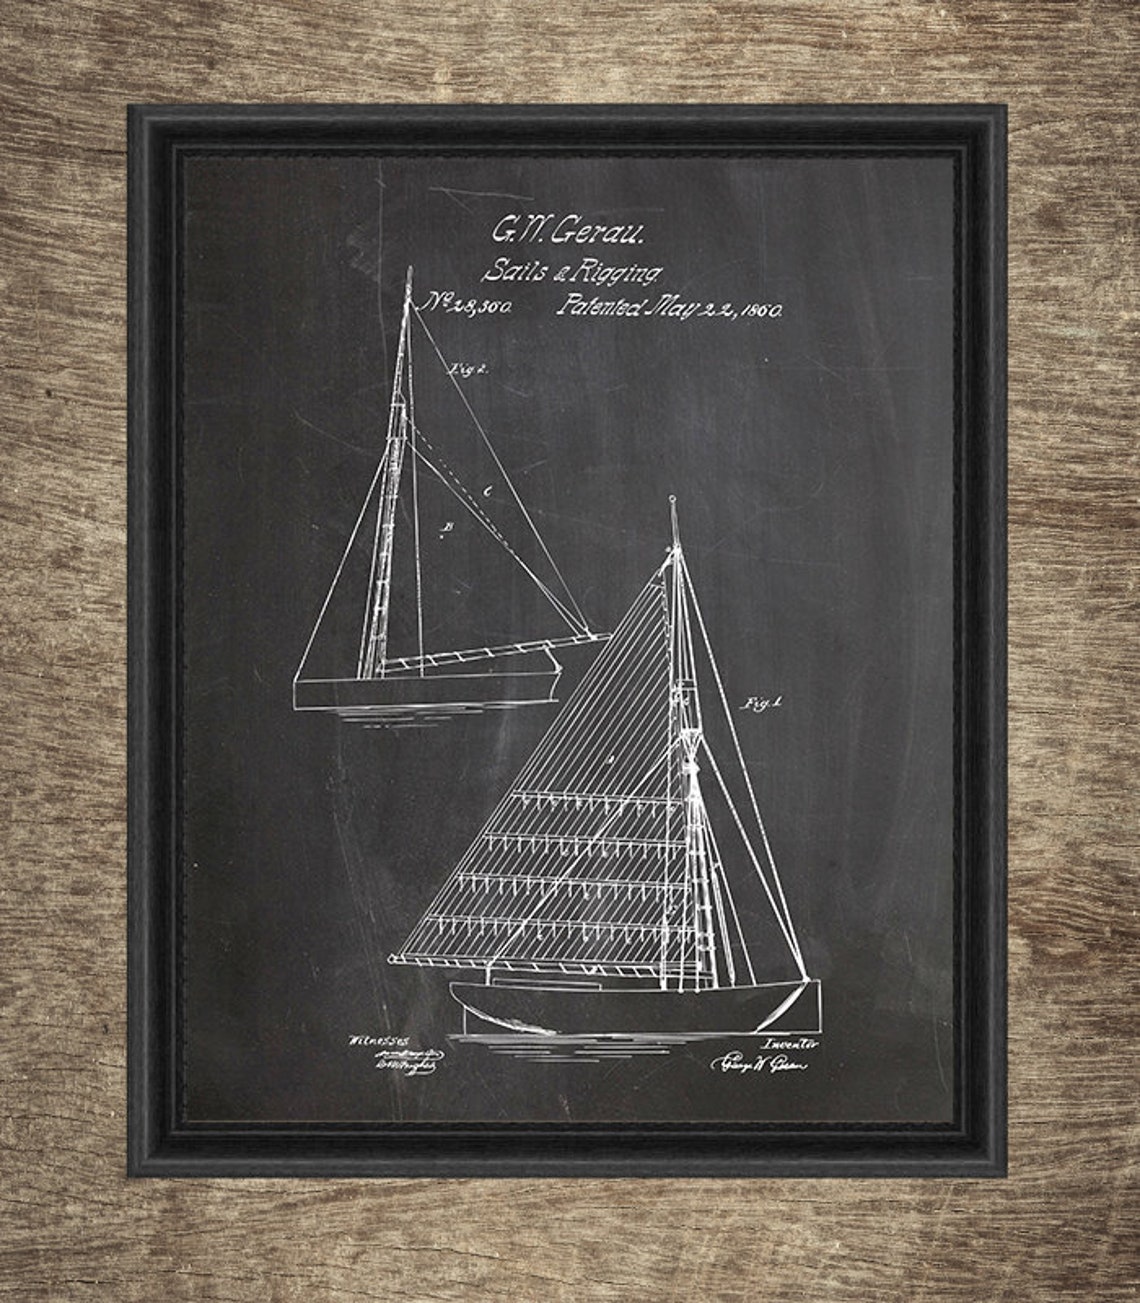 G. W. Gerau.
Sails & Rigging.
Nº 28,360. Patented May 22, 1860.
Fig. 2.
C
B
Fig. 1
A
Witnesses
Inventor
George W Gerau